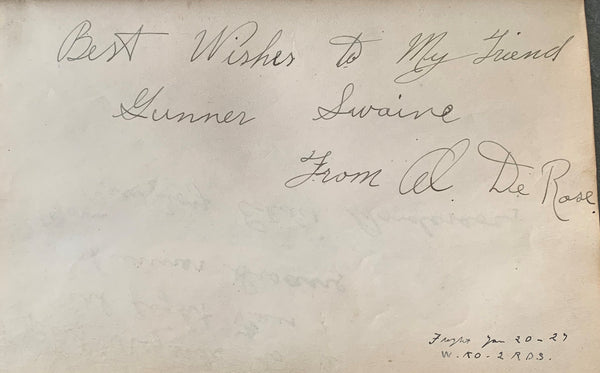 Best Wishes to My Friend
Gunner Swaine
From Al. De Rose.
Fught Jan 20-27
W. KO-2 RDS.